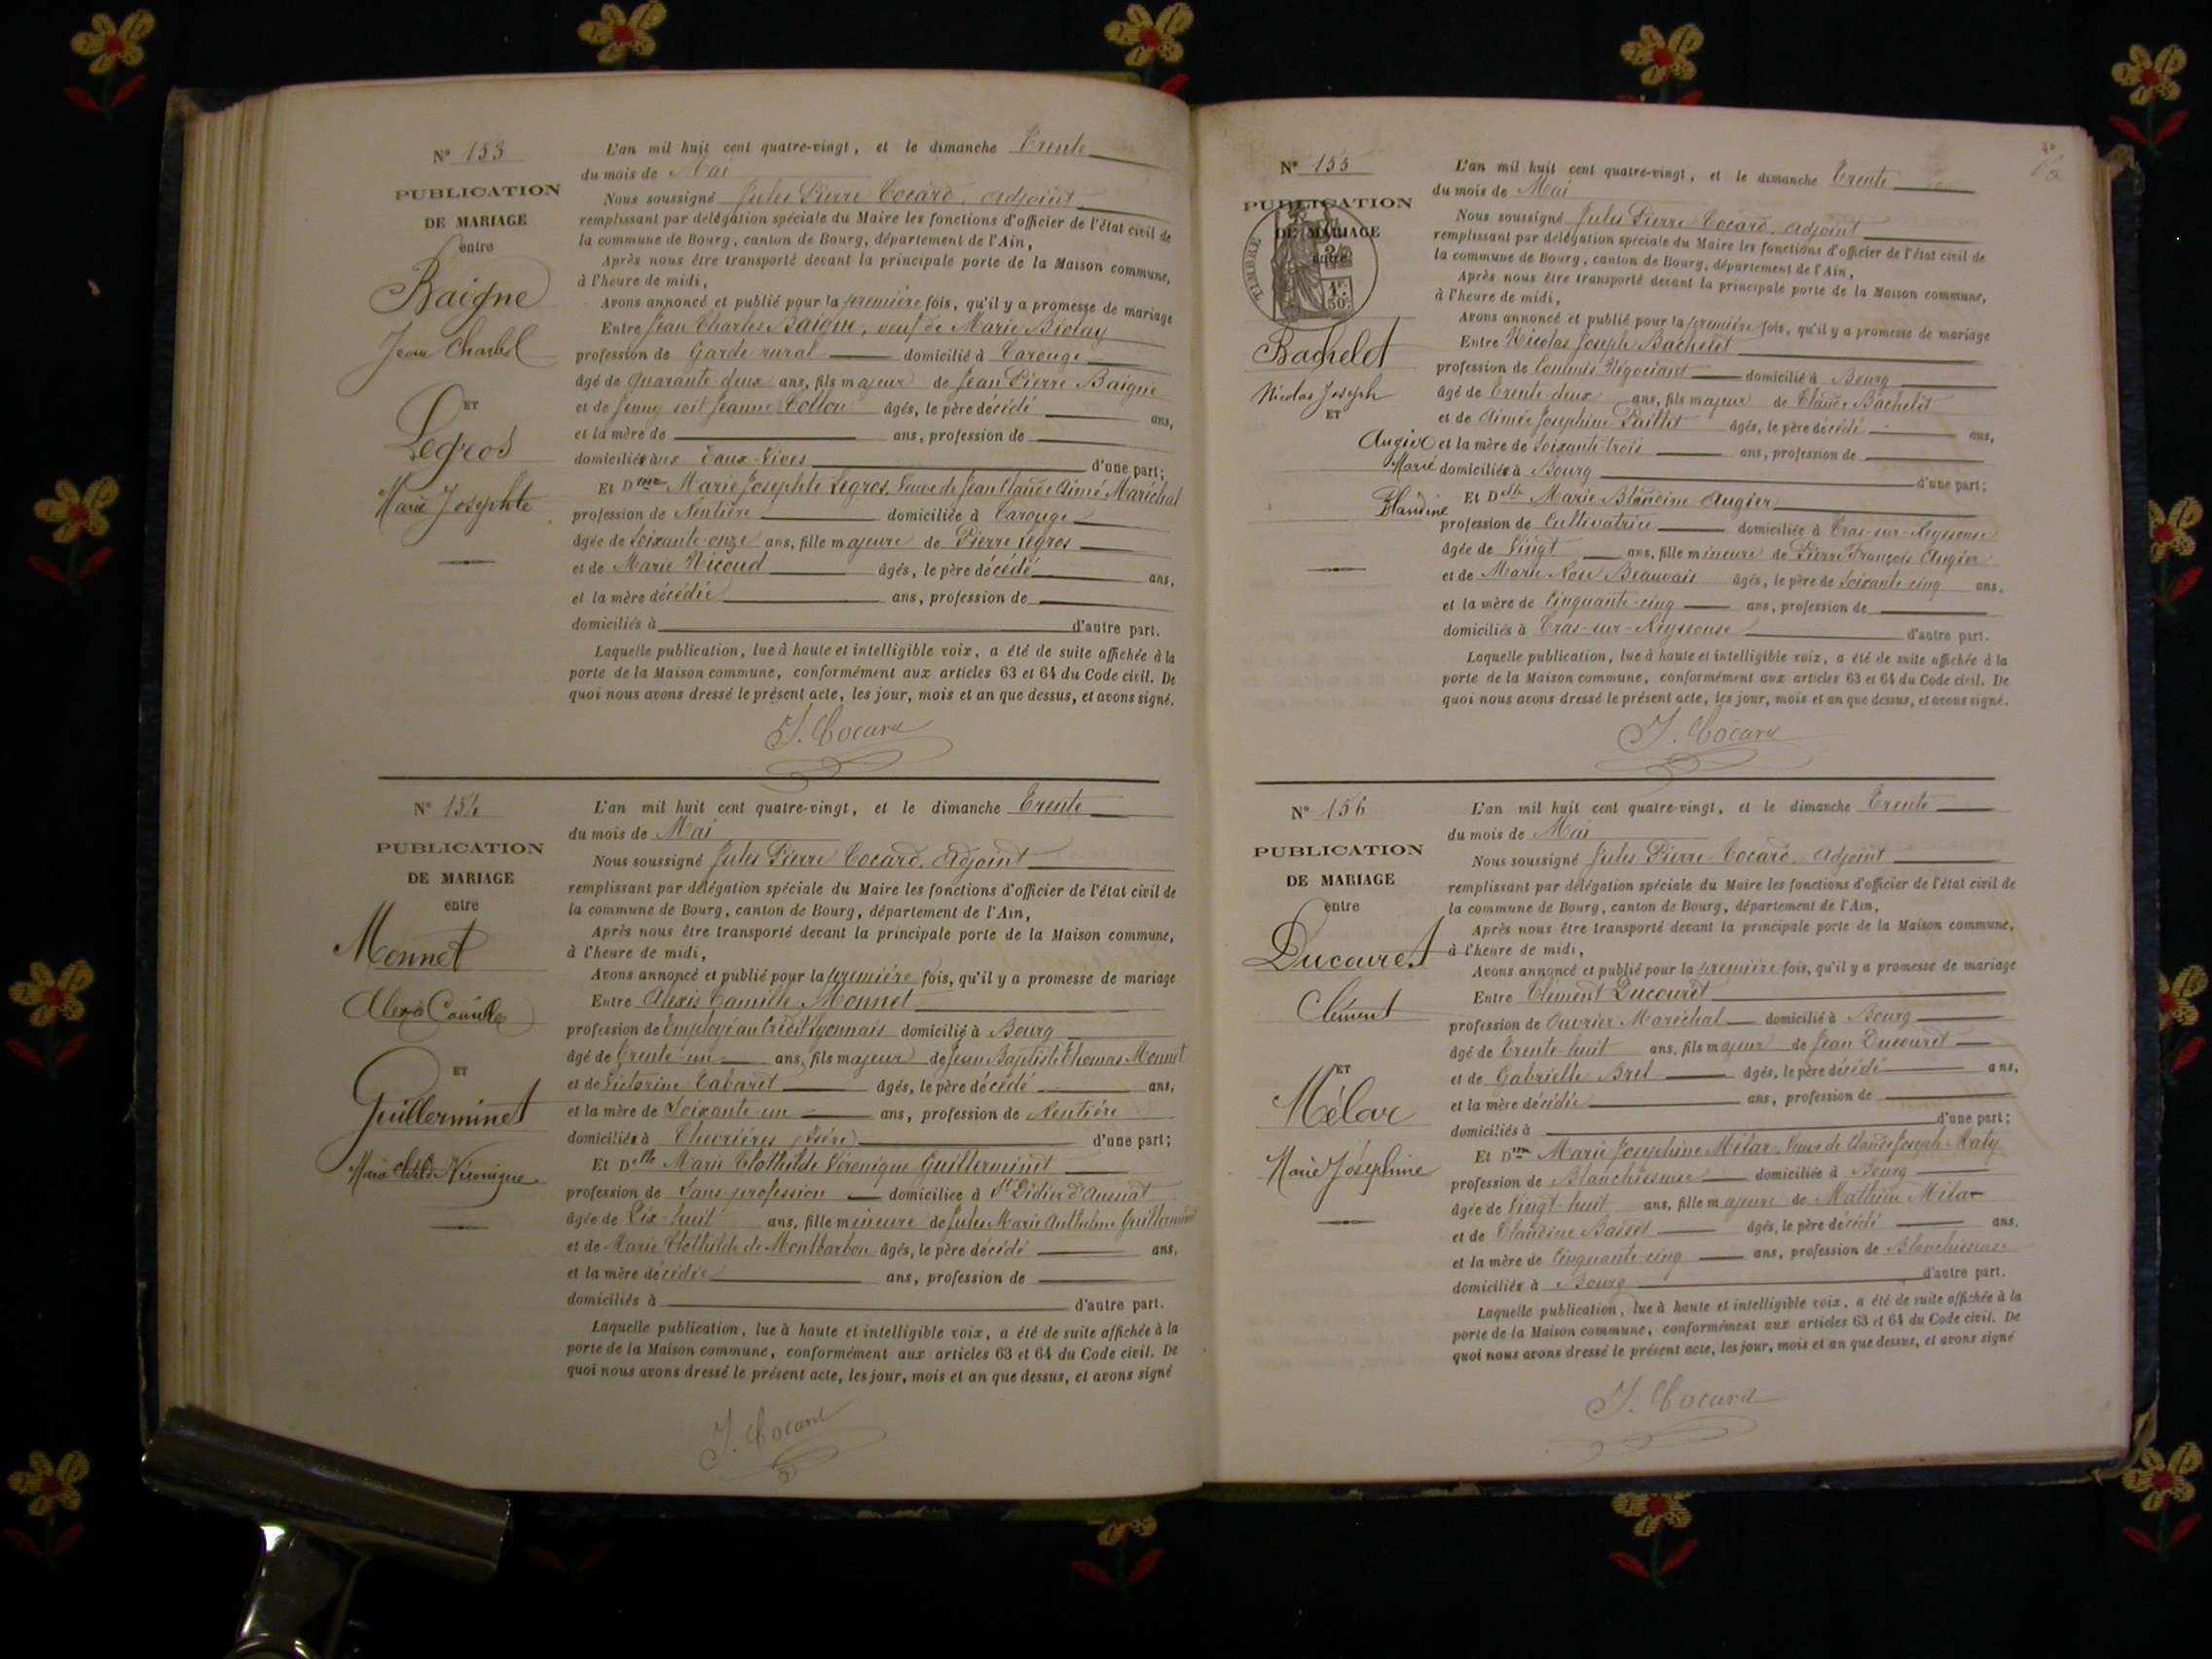 N° 153
PUBLICATION
DE MARIAGE
entre
Baigne
Jean Charles
ET
Legros
Marie Josephte
L'an mil huit cent quatre-vingt, et le dimanche Trente
du mois de Mai
Nous soussigné Jules Pierre Cocard, adjoint
remplissant par délégation spéciale du Maire les fonctions d'officier de l'état civil de
la commune de Bourg, canton de Bourg, département de l'Ain,
Après nous être transporté devant la principale porte de la Maison commune,
à l'heure de midi,
Avons annoncé et publié pour la première fois, qu'il y a promesse de mariage
Entre Jean Charles Baigne, veuf de Marie Biolay
profession de Garde rural domicilié à Carouge
âgé de Quarante deux ans, fils majeur de Jean Pierre Baigne
et de Jenny soit Jeanne Collon âgés, le père décédé ans,
et la mère de ans, profession de
domiciliés aux Eaux-Vives d'une part;
Et Dme Marie Josephte Legros, Veuve de Jean Claude Aimé Maréchal
profession de Rentière domiciliée à Carouge
âgée de Soixante-onze ans, fille majeure de Pierre Legros
et de Marie Nicoud âgés, le père décédé ans,
et la mère décédée ans, profession de
domiciliés à d'autre part.
Laquelle publication, lue à haute et intelligible voix, a été de suite affichée à la
porte de la Maison commune, conformément aux articles 63 et 64 du Code civil. De
quoi nous avons dressé le présent acte, les jour, mois et an que dessus, et avons signé.
J. Cocard
N° 154
PUBLICATION
DE MARIAGE
entre
Monnet
Alexis Camille
ET
Guillerminet
Marie Clotilde Véronique
L'an mil huit cent quatre-vingt, et le dimanche Trente
du mois de Mai
Nous soussigné Jules Pierre Cocard, Adjoint
remplissant par délégation spéciale du Maire les fonctions d'officier de l'état civil de
la commune de Bourg, canton de Bourg, département de l'Ain,
Après nous être transporté devant la principale porte de la Maison commune,
à l'heure de midi,
Avons annoncé et publié pour la première fois, qu'il y a promesse de mariage
Entre Alexis Camille Monnet
profession de Employé au Crédit Lyonnais domicilié à Bourg
âgé de Trente-un ans, fils majeur de Jean Baptiste Thomas Monnet
et de Victorine Cabaret âgés, le père décédé ans,
et la mère de Soixante-un ans, profession de Rentière
domiciliés à Chevrières (Isère) d'une part;
Et Dlle Marie Clothilde Véronique Guillerminet
profession de Sans profession domiciliée à St Didier d'Aussiat
âgée de Dix-huit ans, fille mineure de Jules Marie Anthelme Guillerminet
et de Marie Clothilde de Montbarbon âgés, le père décédé ans,
et la mère décédée ans, profession de
domiciliés à d'autre part.
Laquelle publication, lue à haute et intelligible voix, a été de suite affichée à la
porte de la Maison commune, conformément aux articles 63 et 64 du Code civil. De
quoi nous avons dressé le présent acte, les jour, mois et an que dessus, et avons signé
J. Cocard
N° 155
PUBLICATION
DE MARIAGE
entre
TIMBRE
1F.
50C.
Bachelet
Nicolas Joseph
ET
Augier
Marie
Blandine
L'an mil huit cent quatre-vingt, et le dimanche Trente
du mois de Mai
Nous soussigné Jules Pierre Cocard, adjoint
remplissant par délégation spéciale du Maire les fonctions d'officier de l'état civil de
la commune de Bourg, canton de Bourg, département de l'Ain,
Après nous être transporté devant la principale porte de la Maison commune,
à l'heure de midi,
Avons annoncé et publié pour la première fois, qu'il y a promesse de mariage
Entre Nicolas Joseph Bachelet
profession de Commis Négociant domicilié à Bourg
âgé de Trente deux ans, fils majeur de Claude Bachelet
et de Aimée Josephine Paillet âgés, le père décédé ans,
et la mère de Soixante-trois ans, profession de
domiciliés à Bourg d'une part;
Et Dlle Marie Blandine Augier
profession de Cultivatrice domiciliée à Cras-sur-Reyssouse
âgée de Vingt ans, fille mineure de Pierre François Augier
et de Marie Rose Beauvais âgés, le père de Soixante cinq ans,
et la mère de Cinquante-cinq ans, profession de
domiciliés à Cras-sur-Reyssouse d'autre part.
Laquelle publication, lue à haute et intelligible voix, a été de suite affichée à la
porte de la Maison commune, conformément aux articles 63 et 64 du Code civil. De
quoi nous avons dressé le présent acte, les jour, mois et an que dessus, et avons signé.
J. Cocard
N° 156
PUBLICATION
DE MARIAGE
entre
Ducouret
Clément
ET
Mélar
Marie Joséphine
L'an mil huit cent quatre-vingt, et le dimanche Trente
du mois de Mai
Nous soussigné Jules Pierre Cocard, Adjoint
remplissant par délégation spéciale du Maire les fonctions d'officier de l'état civil de
la commune de Bourg, canton de Bourg, département de l'Ain,
Après nous être transporté devant la principale porte de la Maison commune,
à l'heure de midi,
Avons annoncé et publié pour la première fois, qu'il y a promesse de mariage
Entre Clément Ducouret
profession de Ouvrier Maréchal domicilié à Bourg
âgé de Trente-huit ans, fils majeur de Jean Ducouret
et de Gabrielle Bret âgés, le père décédé ans,
et la mère décédée ans, profession de
domiciliés à d'une part;
Et Dme Marie Josephine Mélar, Veuve de Claude Joseph Maty
profession de Blanchisseuse domiciliée à Bourg
âgée de Vingt-huit ans, fille majeure de Mathieu Mélar
et de Claudine Basset âgés, le père décédé ans,
et la mère de Cinquante-cinq ans, profession de Blanchisseuse
domiciliés à Bourg d'autre part.
Laquelle publication, lue à haute et intelligible voix, a été de suite affichée à la
porte de la Maison commune, conformément aux articles 63 et 64 du Code civil. De
quoi nous avons dressé le présent acte, les jour, mois et an que dessus, et avons signé
J. Cocard